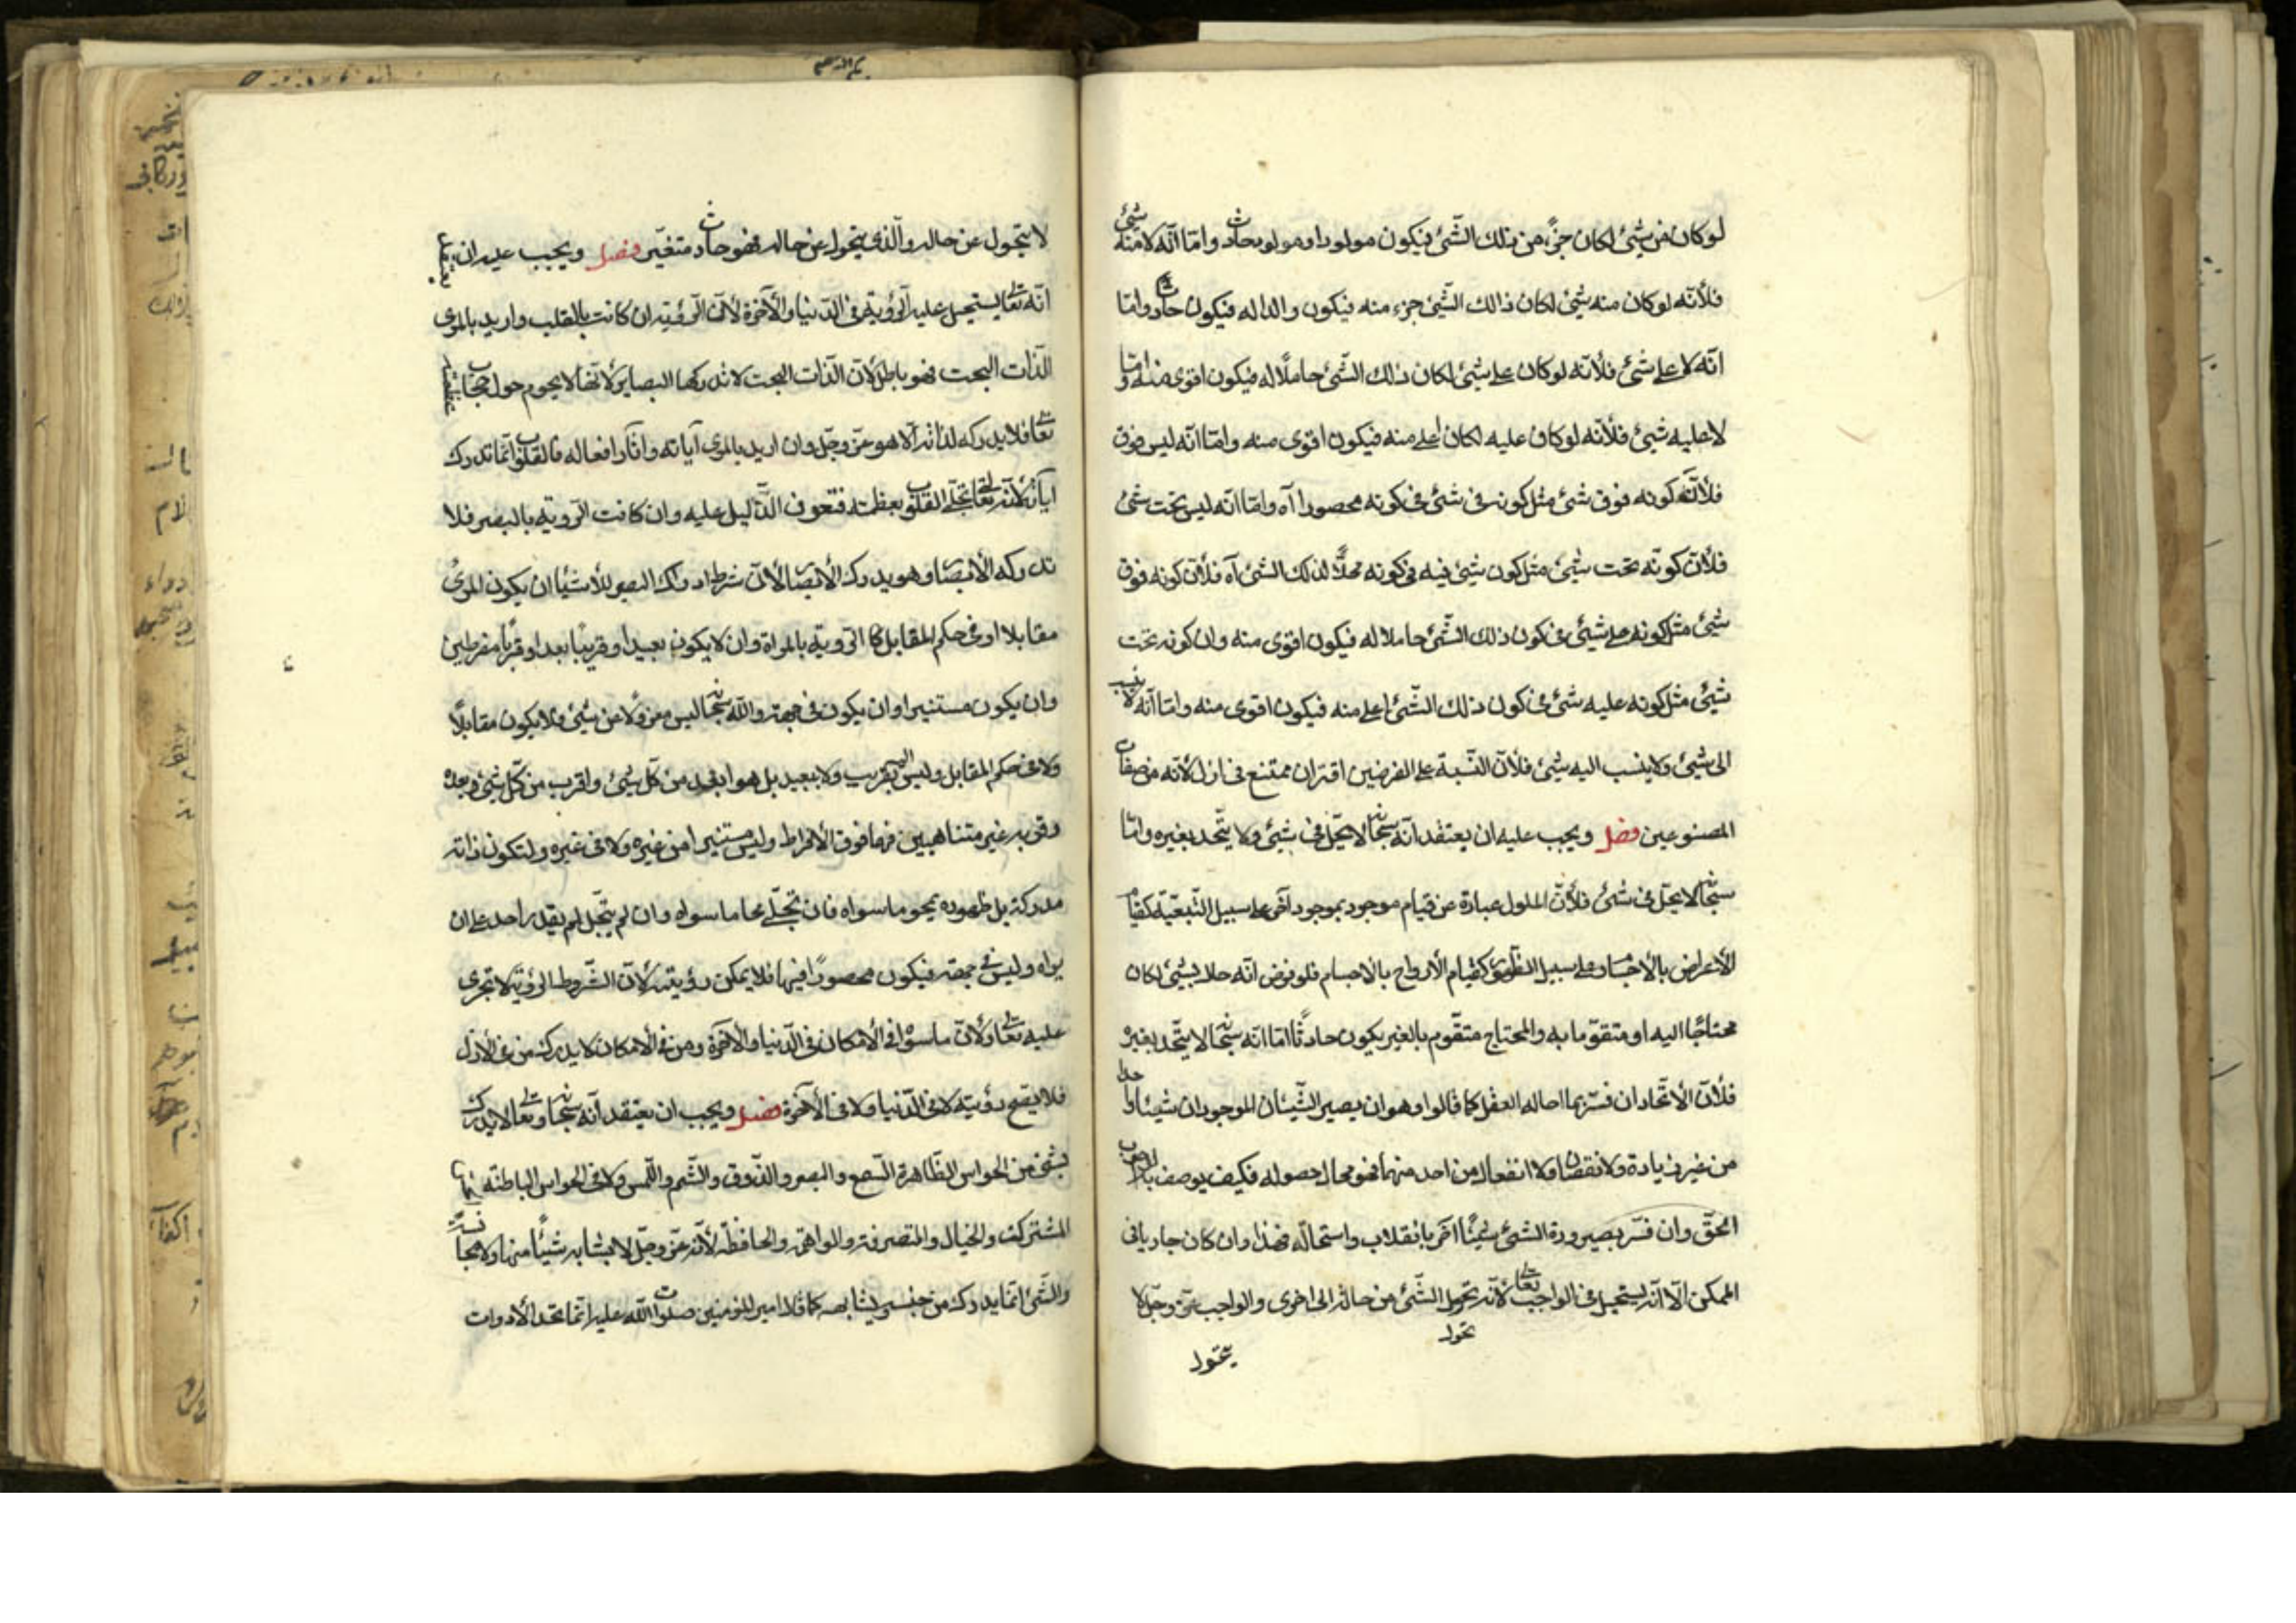 لو كان من شيئ لكان جزءً من ذلك الشّئ فيكون مولودا وهو لوبحادث وامّا انّه لا منه شيئ
فلأنّه لو كان منه شيئ لكان ذالك الشّيئ جزء منه فيكون والدا له فيكون حادث وامّا
انّه لا على شئ فلأنّه لو كان على شيئ لكان ذلك الشّئ حاملًا له فيكون اقوى منه وامّا
لا عليه شيئ فلأنّه لو كان عليه لكان اعلى منه فيكون اقوى منه وامّا انّه ليس فوق
فلأنّه كونه فوق شئ مثل كونه فى شئ فى كونه محصورا آه وامّا انّه ليس تحت شئ
فلأنّ كونّه تحت شيئ مثل كون شيئ فيه فى كونه محلًّا لذلك الشئ آه فلأنّ كونه فوق
شيئ مثل كونه على شيئ فى كون ذلك الشّئ حاملا له فيكون اقوى منه وان كونه تحت
شيئ مثل كونه عليه شئ فى كون ذلك الشّئ اعلى منه فيكون اقوى منه وامّا انّه لا ينسب
الى شيئ ولا ينسب اليه شيئ فلأنّ النّسبة على الفرضين اقتران ممتنع فى ازل لأنّه من صفات
المصنوعين فصل ويجب عليه ان يعتقد انّه سبحانه لا يحّل فى شيئ ولا يتّحد بغيره وامّا
سبحانه لا يحّل فى شئ فلأنّ الحلول عبارة عن قيام موجود بموجود آخر على سبيل التّبعيّة كقيام
الأعراض بالأجسام او على سبيل الظهور كقيام الأرواح بالاجسام فلو فرض انّه حلا بشيئ لكان
محتاجًا اليه او متقوّما به والمحتاج متقّوم بالغير يكون حادثًا امّا انّه سبحانه لا يتّحد بغيره
فلأنّ الأتّحاد ان فسّر بما احاله العقل كما قالوا وهو ان يصير الشّيئان الموجودان شيئا واحدا
من غير زيادة ولا نقصان ولا انفعال من احد منهما فهو محال حصوله فكيف يوصف به الواجب
الحقّ وان فسّر بصيرورة الشئ شيئًا آخر بانقلاب واستحالة فهذا وان كان جاريا فى
الممكن الّا انّه يستحيل فى الواجب تعالى لأنّه تحّول الشّئ من حالة الى اخرى والواجب عزّ وجلّ لا
تحول
يتحول
لا يتحول عن حاله والّذى يتحول عن حاله فهو حادث متغيّر فصل ويجب عليه ان يعتقد
انّه تعالى يستحيل عليه الرّؤية فى الدّنيا والآخرة لأنّ الرّؤية ان كانت بالقلب واريد بالمرئى
الذّات البحت فهو باطل لأنّ الذّات البحت لا تدركها البصاير لأنّها لا يحوم حول حجاب عظمته
تعالى فلا يدركه لذاته الّا هو عزّ وجلّ وان اريد بالمرئى آياته وآثار افعاله فالقلوب انّما تدرك
آياته لأنّه تعالى تجلّى للقلوب بعظمته فتعرف الدّليل عليه وان كانت الرّوية بالبصر فلا
تدركه الأبصار وهو يدرك الأبصار لأنّ شرط ادراك البصر للأشياء ان يكون المرئى
مقابلا او فى حكم المقابل كالرّوية بالمراة وان لا يكون بعيدا وقريبًا بعدا وقربًا مفرطين
وان يكون مستنيرا وان يكون فى جهة والله سبحانه ليس معزولًا عن شيئ ولا يكون مقابلًا
ولا فى حكم المقابل وليس بقريب ولا ببعيد بل هو ابعد من كلّ شيئ واقرب من كلّ شيئ وبعده
وقربه غير متناهيين فهما فوق الأفراط وليس مستنيرا من غيره ولا فى غيره ولتكون ذاته
مدركة بل ظهوره يمحو ما سواه فان تجلّى محا ما سواه وان لم يتجّل لم يقدر احد على ان
يراه وليس فى جهة فيكون محصورًا فيها فلا يمكن رؤيته لأنّ الشّروط الرؤية لا تجرى
عليه تعالى ولأنّ ما سواه فى الأمكان فى الدّنيا والآخرة ومن فى الأمكان لا يدرك من فى الأزل
فلا يقع رؤيته لا فى الدّنيا ولا فى الآخرة فصل ويجب ان يعتقد انّه سبحانه وتعالى لا يدرك
بشئ من الحواس الظّاهرة السّمع والبصر والذّوق والشّم واللّمس ولا فى الحواس الباطنة
المشتركة والخيال والمتصرفة والواهمة والحافظة لأنّه عزّ وجلّ لا يشابه شيئًا منها ولا مجانسة
والشّئ انّما يدرك من جنسه يشابهه كما قال امير المؤمنين صلوات الله عليه انّما تحد الأدوات